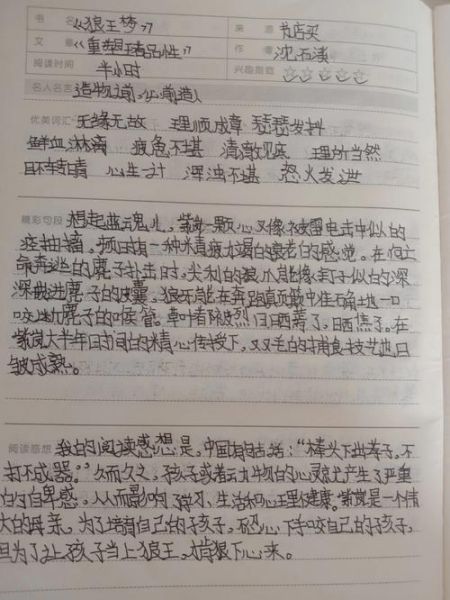 书 名 《狼王梦》 来 源 书店买
文 章 《重塑狼品性》 作 者 沈石溪
阅读时间 半小时 兴趣指数 ☆☆☆☆☆
名人名言 造物之前,必先造人
优美词汇 无缘无故 理顺成章 瑟瑟发抖
鲜血淋漓 疲惫不堪 清澈见底 理所当然
目不转睛 心生一计 浑浊不堪 怒火发泄
精彩句段 想起蓝魂儿,紫岚一颗心又像被雷电击中似的
痉挛抽搐。顿时有一种精疲力竭的衰老的感觉。在向亡
命奔逃的鹿子扑击时,尖利的狼爪能像钉子似的深
深抠进鹿子的皮囊,狼牙能在奔跑颠顶中准确地一口
咬断鹿子的喉管。草叶都被烈日晒蔫了,晒焦了。在
紫岚大半年时间的精心传授下,双毛的捕食技艺也日
臻成熟。
阅读感想 我的阅读感想是,中国有句古话:“棒头下出孝子,不
打不成器。”久而久之,孩子或者动物的心灵就产生了严重
的自卑感,从而影响了学习、生活和心理健康。紫岚是一个伟
大的母亲。为了培育自己的孩子,忍心下手咬自己的孩子,
但为了让孩子当上狼王,肯狠下心来。